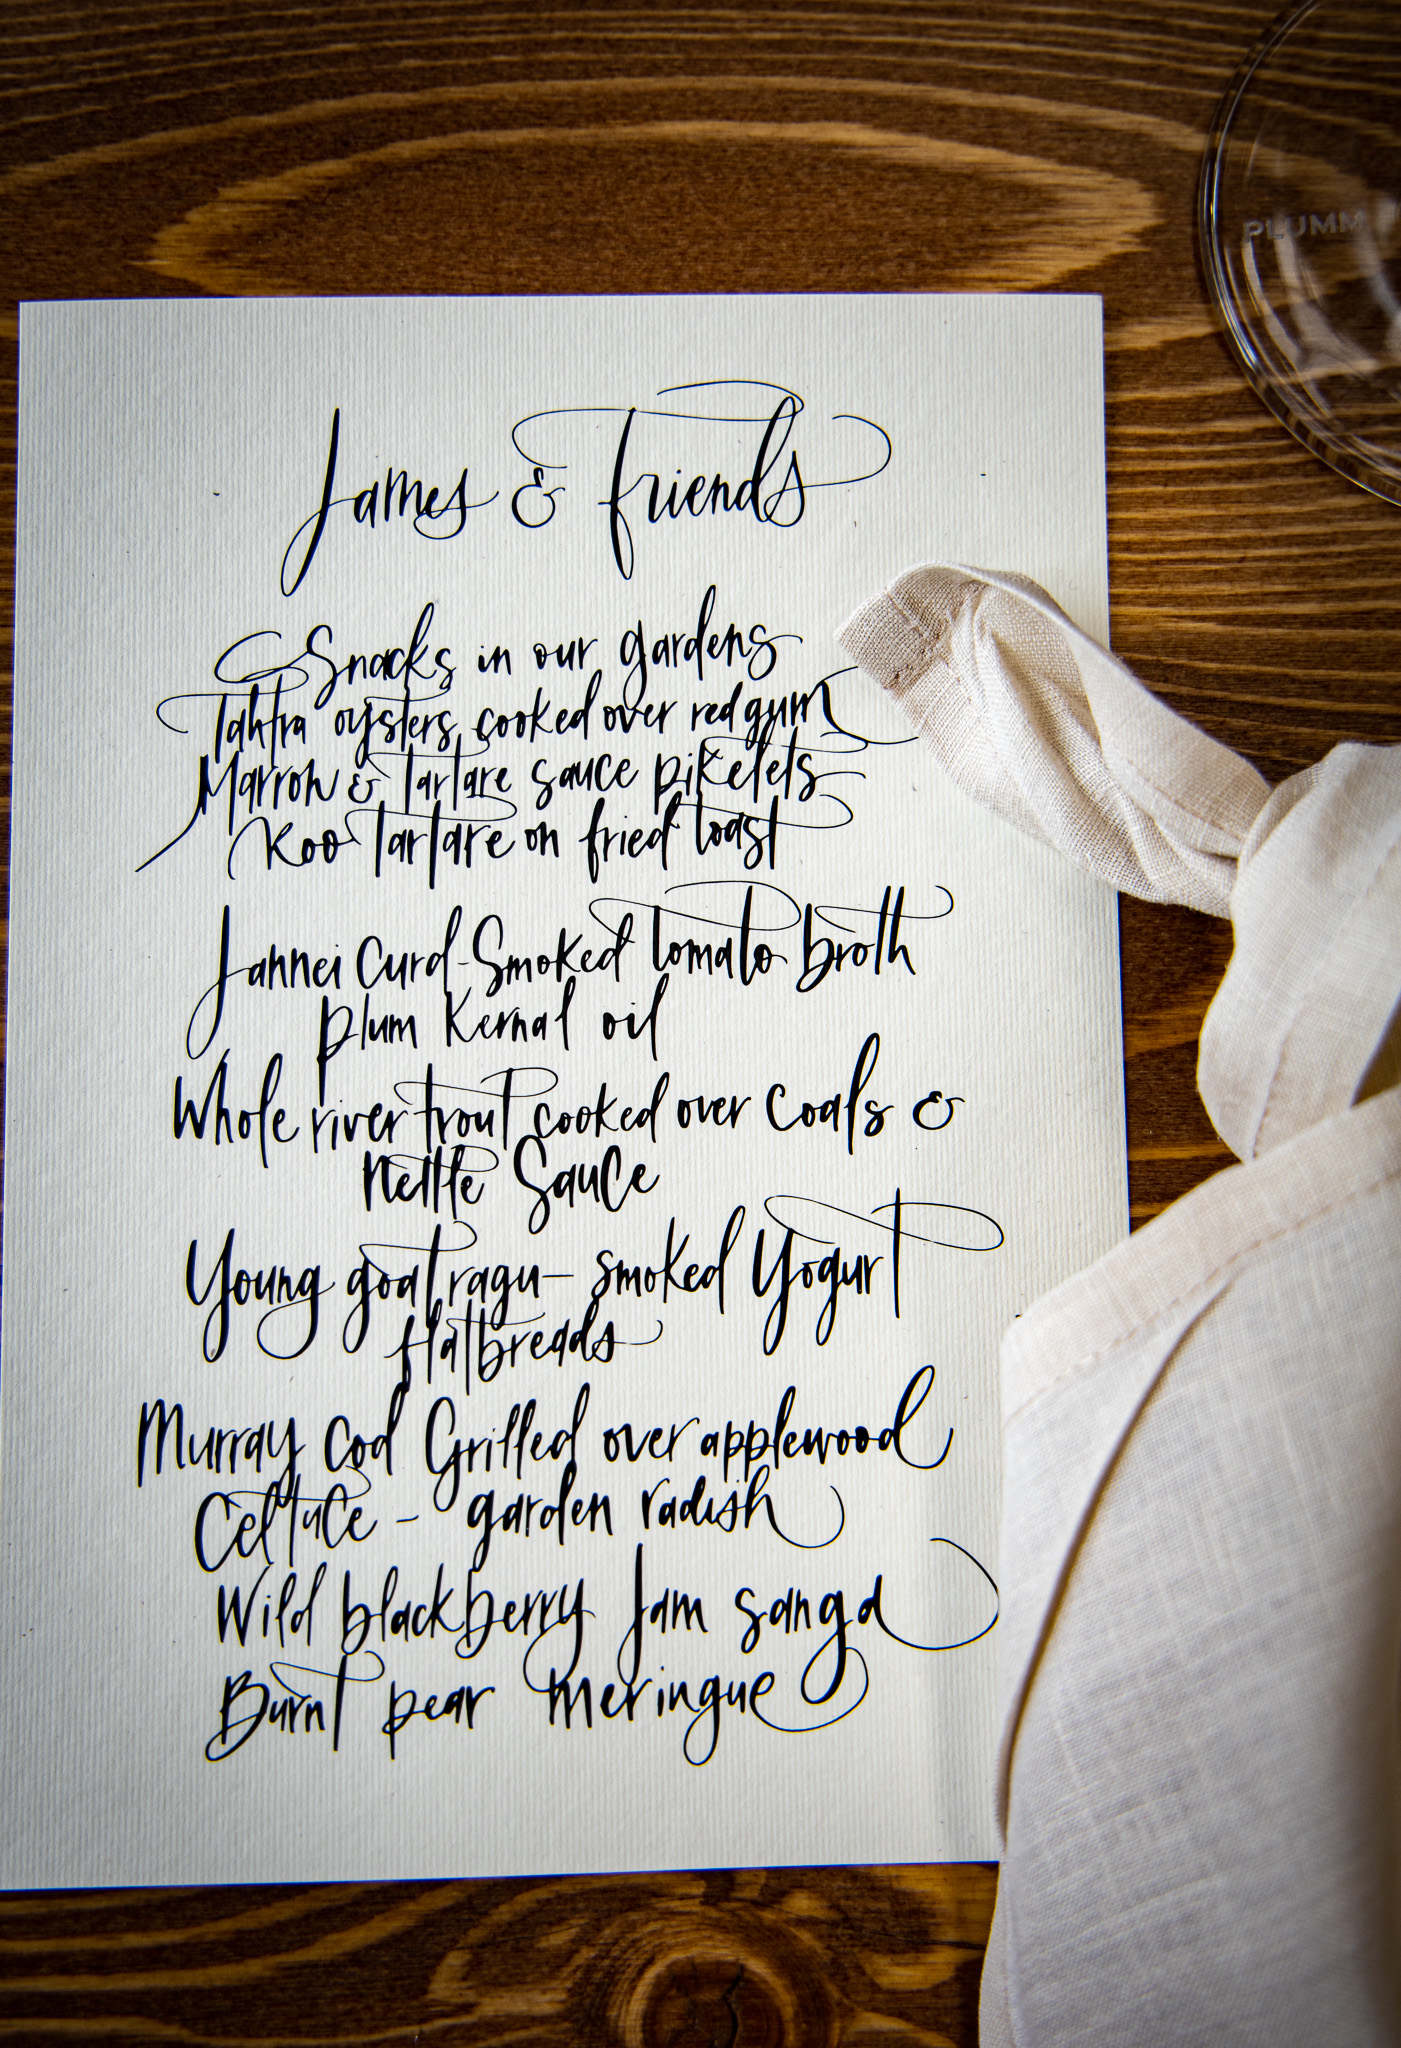 James & friends
Snacks in our gardens
Tahtra oysters cooked over redgum
Marron & Tartare sauce pikelets
Roo Tartare on fried toast
Jannei Curd-Smoked tomato broth
plum Kernal oil
Whole river trout cooked over coals &
Nettle Sauce
Young goat ragu - smoked Yogurt
flatbreads
Murray Cod Grilled over applewood
Celtuce - garden radish
Wild blackberry Jam sanga
Burnt pear meringue
PLUMM